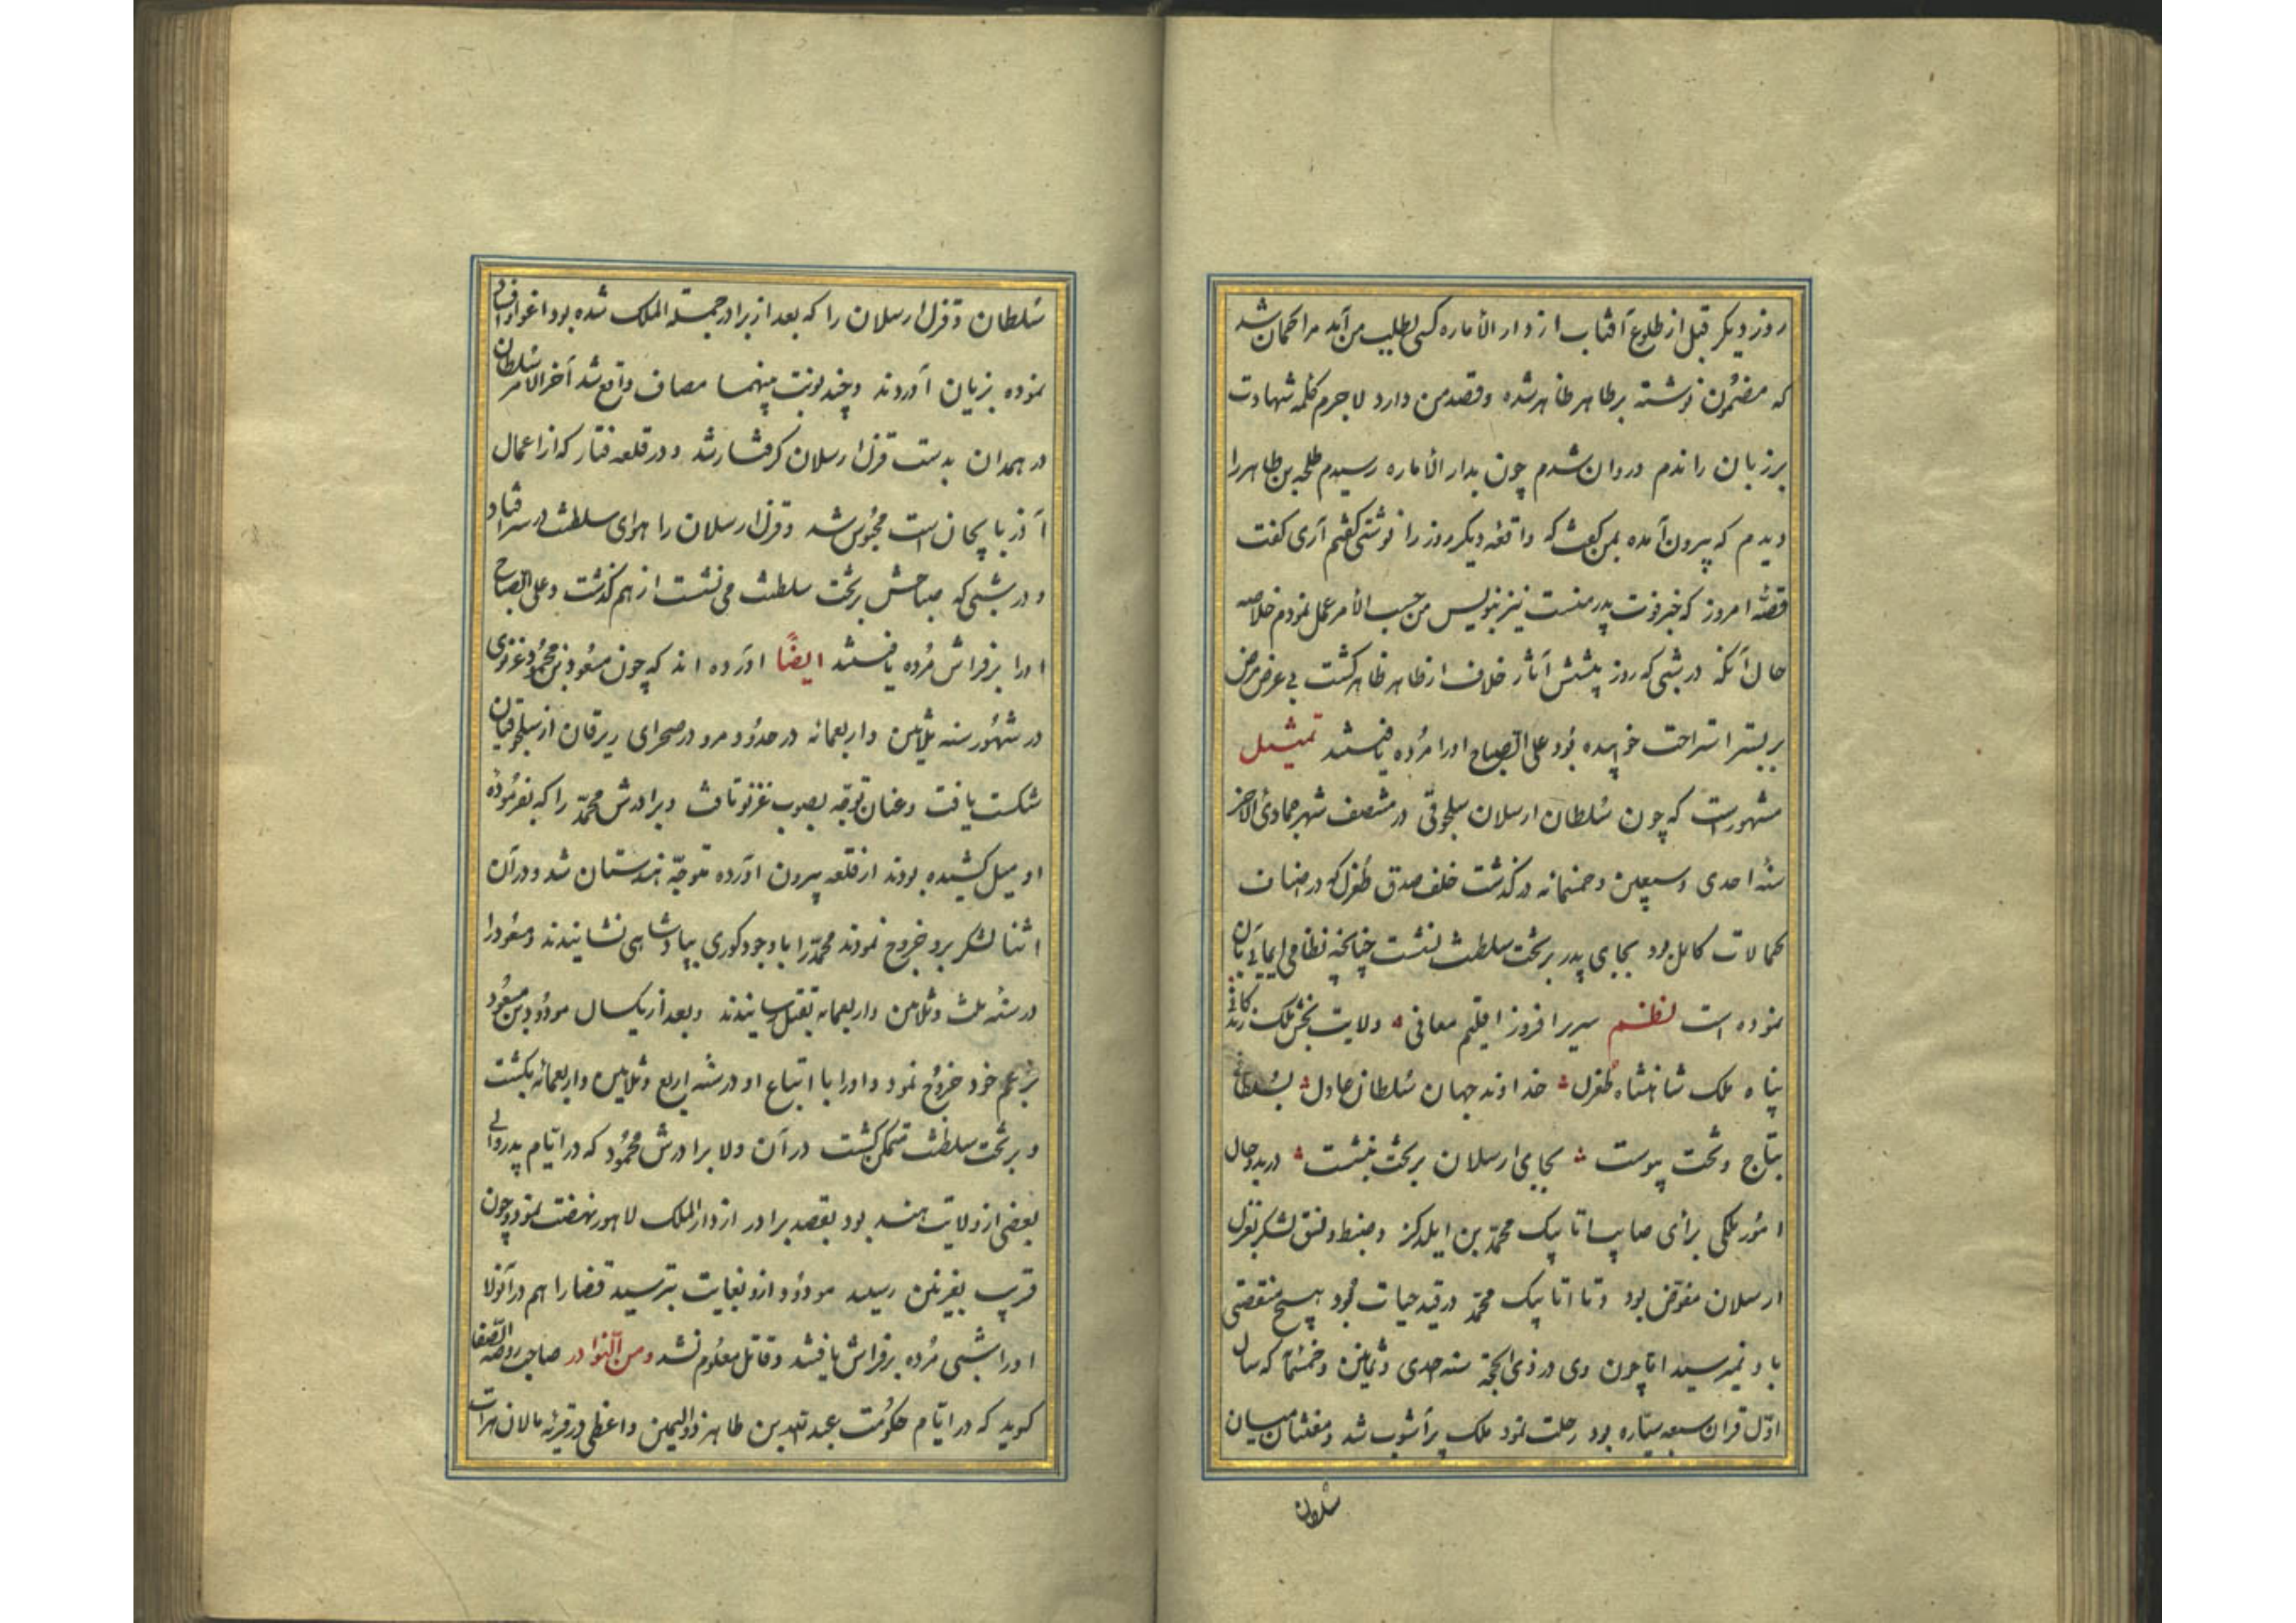 روز دیکر قبل از طلوع آفتاب از دار الاماره کسی بطلب من آمد مرا کمان شد
که مضمون نوشته بر طاهر ظاهر شده و قصد من دارد لاجرم کلمه شهادت
بر زبان راندم و روان شدم چون بدار الاماره رسیدم طلحه بن طاهر را
دیدم که بیرون آمده بمن گفت که واقعه دیکروز را نوشتی گفتم آری گفت
قصّهٔ امروز که خبر فوت پدر منست نیز بنویس من حسب الامر عمل نمودم خلاصه
حال آنکه در شبی که روز پیشش آثار خلاف از طاهر ظاهر گشت بی عرض مرض
بر بستر استراحت خوابیده بود علی الصباح او را مرده یافتند تمثیل
مشهور است که چون سلطان ارسلان سلجوقی در منتصف شهر جمادی الاخر
سنهٔ احدی و سبعین و خمسمائه درگذشت خلف صدق طغرل که در اصناف
کمالات کامل بود بجای پدر بر تخت سلطنت نشست چنانچه نظامی ایمایی بآن
نموده است نظم سریر افروز اقلیم معانی ولایت بخش ملک زندگانی
پناه ملک شاهنشاه طغرل خداوند جهان سلطان عادل بسلطانی
بتاج و تخت پیوست بجای ارسلان بر تخت بنشست در بدو حال
امور ملکی برای صایب اتابیک محمد بن ایلدکز و ضبط و نسق لشکر بقزل
ارسلان مفوّض بود و تا اتابیک محمد در قید حیات بود هیچ منقصتی
باو نمیرسید امّا چون وی در ذی الحجّه سنه احدی و ثمانین و خمسمائه که سال
اوّل قران سبعه سیّاره بود رحلت نمود ملک پرآشوب شد و مفتنان میان
سلطان
سلطان و قزل ارسلان را که بعد از برادر جملة الملک شده بود اغوا و افساد
نموده بزیان آوردند و چند نوبت بینهما مصاف واقع شد آخر الامر سلطان
در همدان بدست قزل ارسلان گرفتار شد و در قلعه که از اعمال
آذربایجان است محبوس شد و قزل ارسلان را هوای سلطنت در سر افتاد
و در شبی که صباحش بر تخت سلطنت می نشست از هم گذشت و علی الصباح
او را بر فراش مرده یافتند ایضاً آورده اند که چون مسعود بن محمود غزنوی
در شهور سنه ثلاثین و اربعمائه در حدود مرو در صحرای از سلجوقیان
شکست یافت و عنان توجّه بصوب غزنو تافت و برادرش محمّد را که بفرمودهٔ
او میل کشیده بودند از قلعه بیرون آورده متوجّه هندستان شد و در آن
اثنا لشکر برو خروج نمودند محمّد را با وجود کوری بپادشاهی نشانیدند و مسعود را
در سنه ثلث و ثلاثین و اربعمائه بقتل رسانیدند و بعد از یکسال مودود بن مسعود
بر عم خود خروج نمود و او را با اتباع او در سنه اربع و ثلاثین و اربعمائه بکشت
و بر تخت سلطنت متمکن گشت در آن ولا برادرش محمود که در ایّام پدر والی
بعضی از ولایت هند بود بقصد برادر از دار الملک لاهور نهضت نمود و چون
قریب بغزنین رسید مودود ازو بغایت بترسید قضا را هم در آنولا
او را شبی مرده بر فراش یافتند و قاتل معلوم نشد و من النوادر صاحب روضة الصفا
گوید که در ایّام حکومت عبدالله بن طاهر ذو الیمین واعظی در قریه مالان هرات